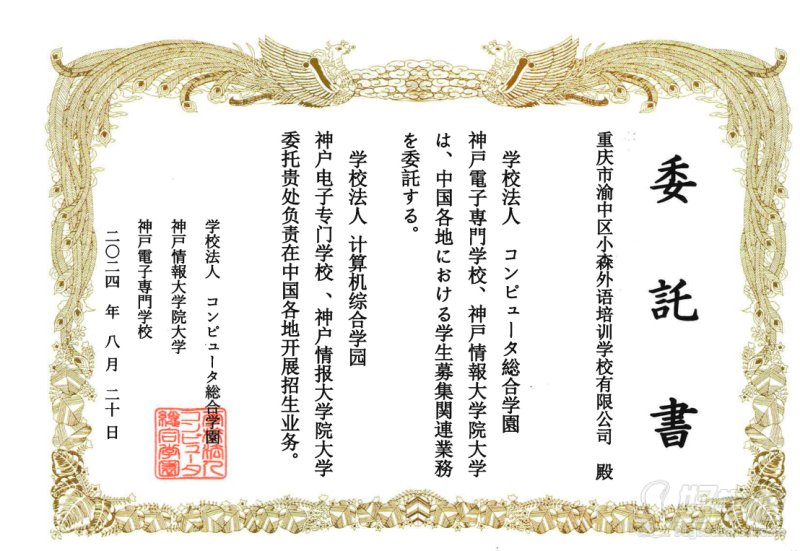 委託書
重庆市渝中区小森外语培训学校有限公司 殿
学校法人 コンピュータ総合学園
神戸電子専門学校、神戸情報大学院大学
は、中国各地における学生募集関連業務
を委託する。
学校法人 计算机综合学园
神户电子专门学校、神户情报大学院大学
委托贵处负责在中国各地开展招生业务。
学校法人 コンピュータ総合学園
神戸情報大学院大学
神戸電子専門学校
二〇二四 年 八 月 二十 日